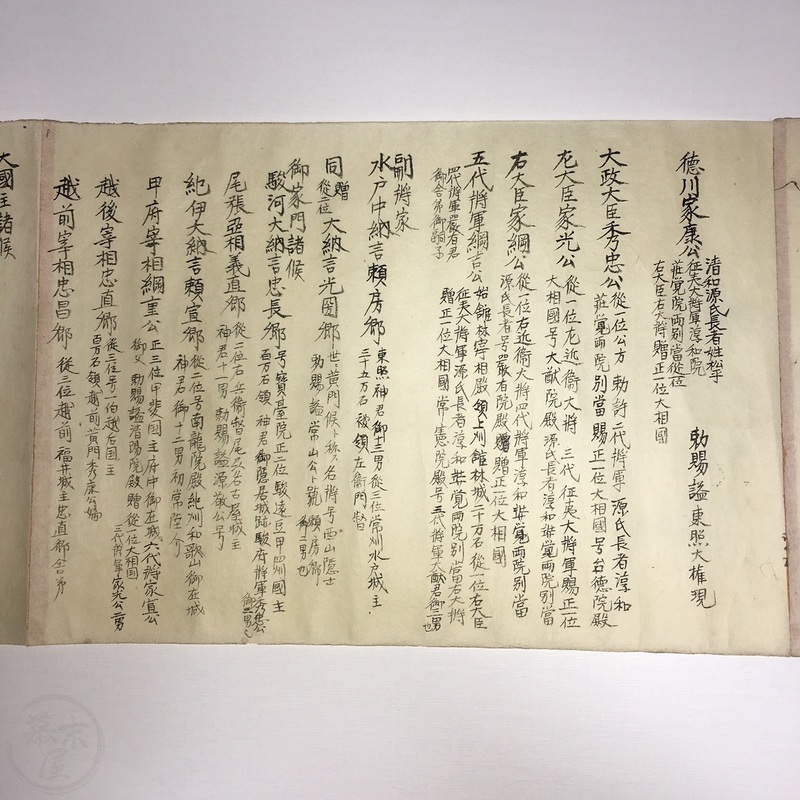 徳川家康公
清和源氏長者姓松平
征夷大将軍淳和院
奨覚院両別當従一位
右大臣右大将贈正一位大相國
勅賜謚東照大権現
大政大臣秀忠公
従一位公方 勅許二代将軍 源氏長者淳和
奨覚両院別當賜正一位大相國号台徳院殿
左大臣家光公
従一位左近衛大将 三代征夷大将軍賜正一位
大相國号大猷院殿 源氏長者淳和奨覚両院別當
右大臣家綱公
従一位右近衛大将四代将軍淳和奨覚両院別當
源氏長者号嚴有院殿贈正一位大相國
五代将軍綱吉公
四代将軍嚴有君
御舎弟御嗣子
始舘林宰相殿領上刕舘林城二十万石従一位右大臣
征夷大将軍源氏長者淳和奨覚両院別當右大将
贈正一位大相國常憲院殿号三代将軍大猷君御三男也
副将家
水戸中納言頼房郷
東照神君御十三男従三位常州水戸城主
三十五万石被領左衛門督
同
贈従二位
大納言光圀郷
世々黄門候ト称ス名将号西山隠士
勅賜謚常山公ト號 頼房郷
御二男也
御家門諸候
駿河大納言忠長郷
号寶臺院正二位駿遠豆甲四州國主
百万石領 神君御隠居城跡駿府将軍秀忠公
御三男也
尾張亞相義直郷
従二位右兵衛督尾刕名古屋城主
神君十一男勅賜謚源敬公号
紀伊大納言頼宣郷
従二位号南龍院殿紀州和歌山御在城
神君御十二男初常陸介
甲府宰相綱重公
正三位甲斐国主府中御在城六代将家宣公
御父 勅賜謚清陽院殿贈従一位大相国
三代将軍家光公二男
越後宰相忠直郷
従三位号一伯越后国主
百万石領越前黄門秀康公嫡
越前宰相忠昌郷
従三位越前福井城主忠直郷舎弟
大國主諸候